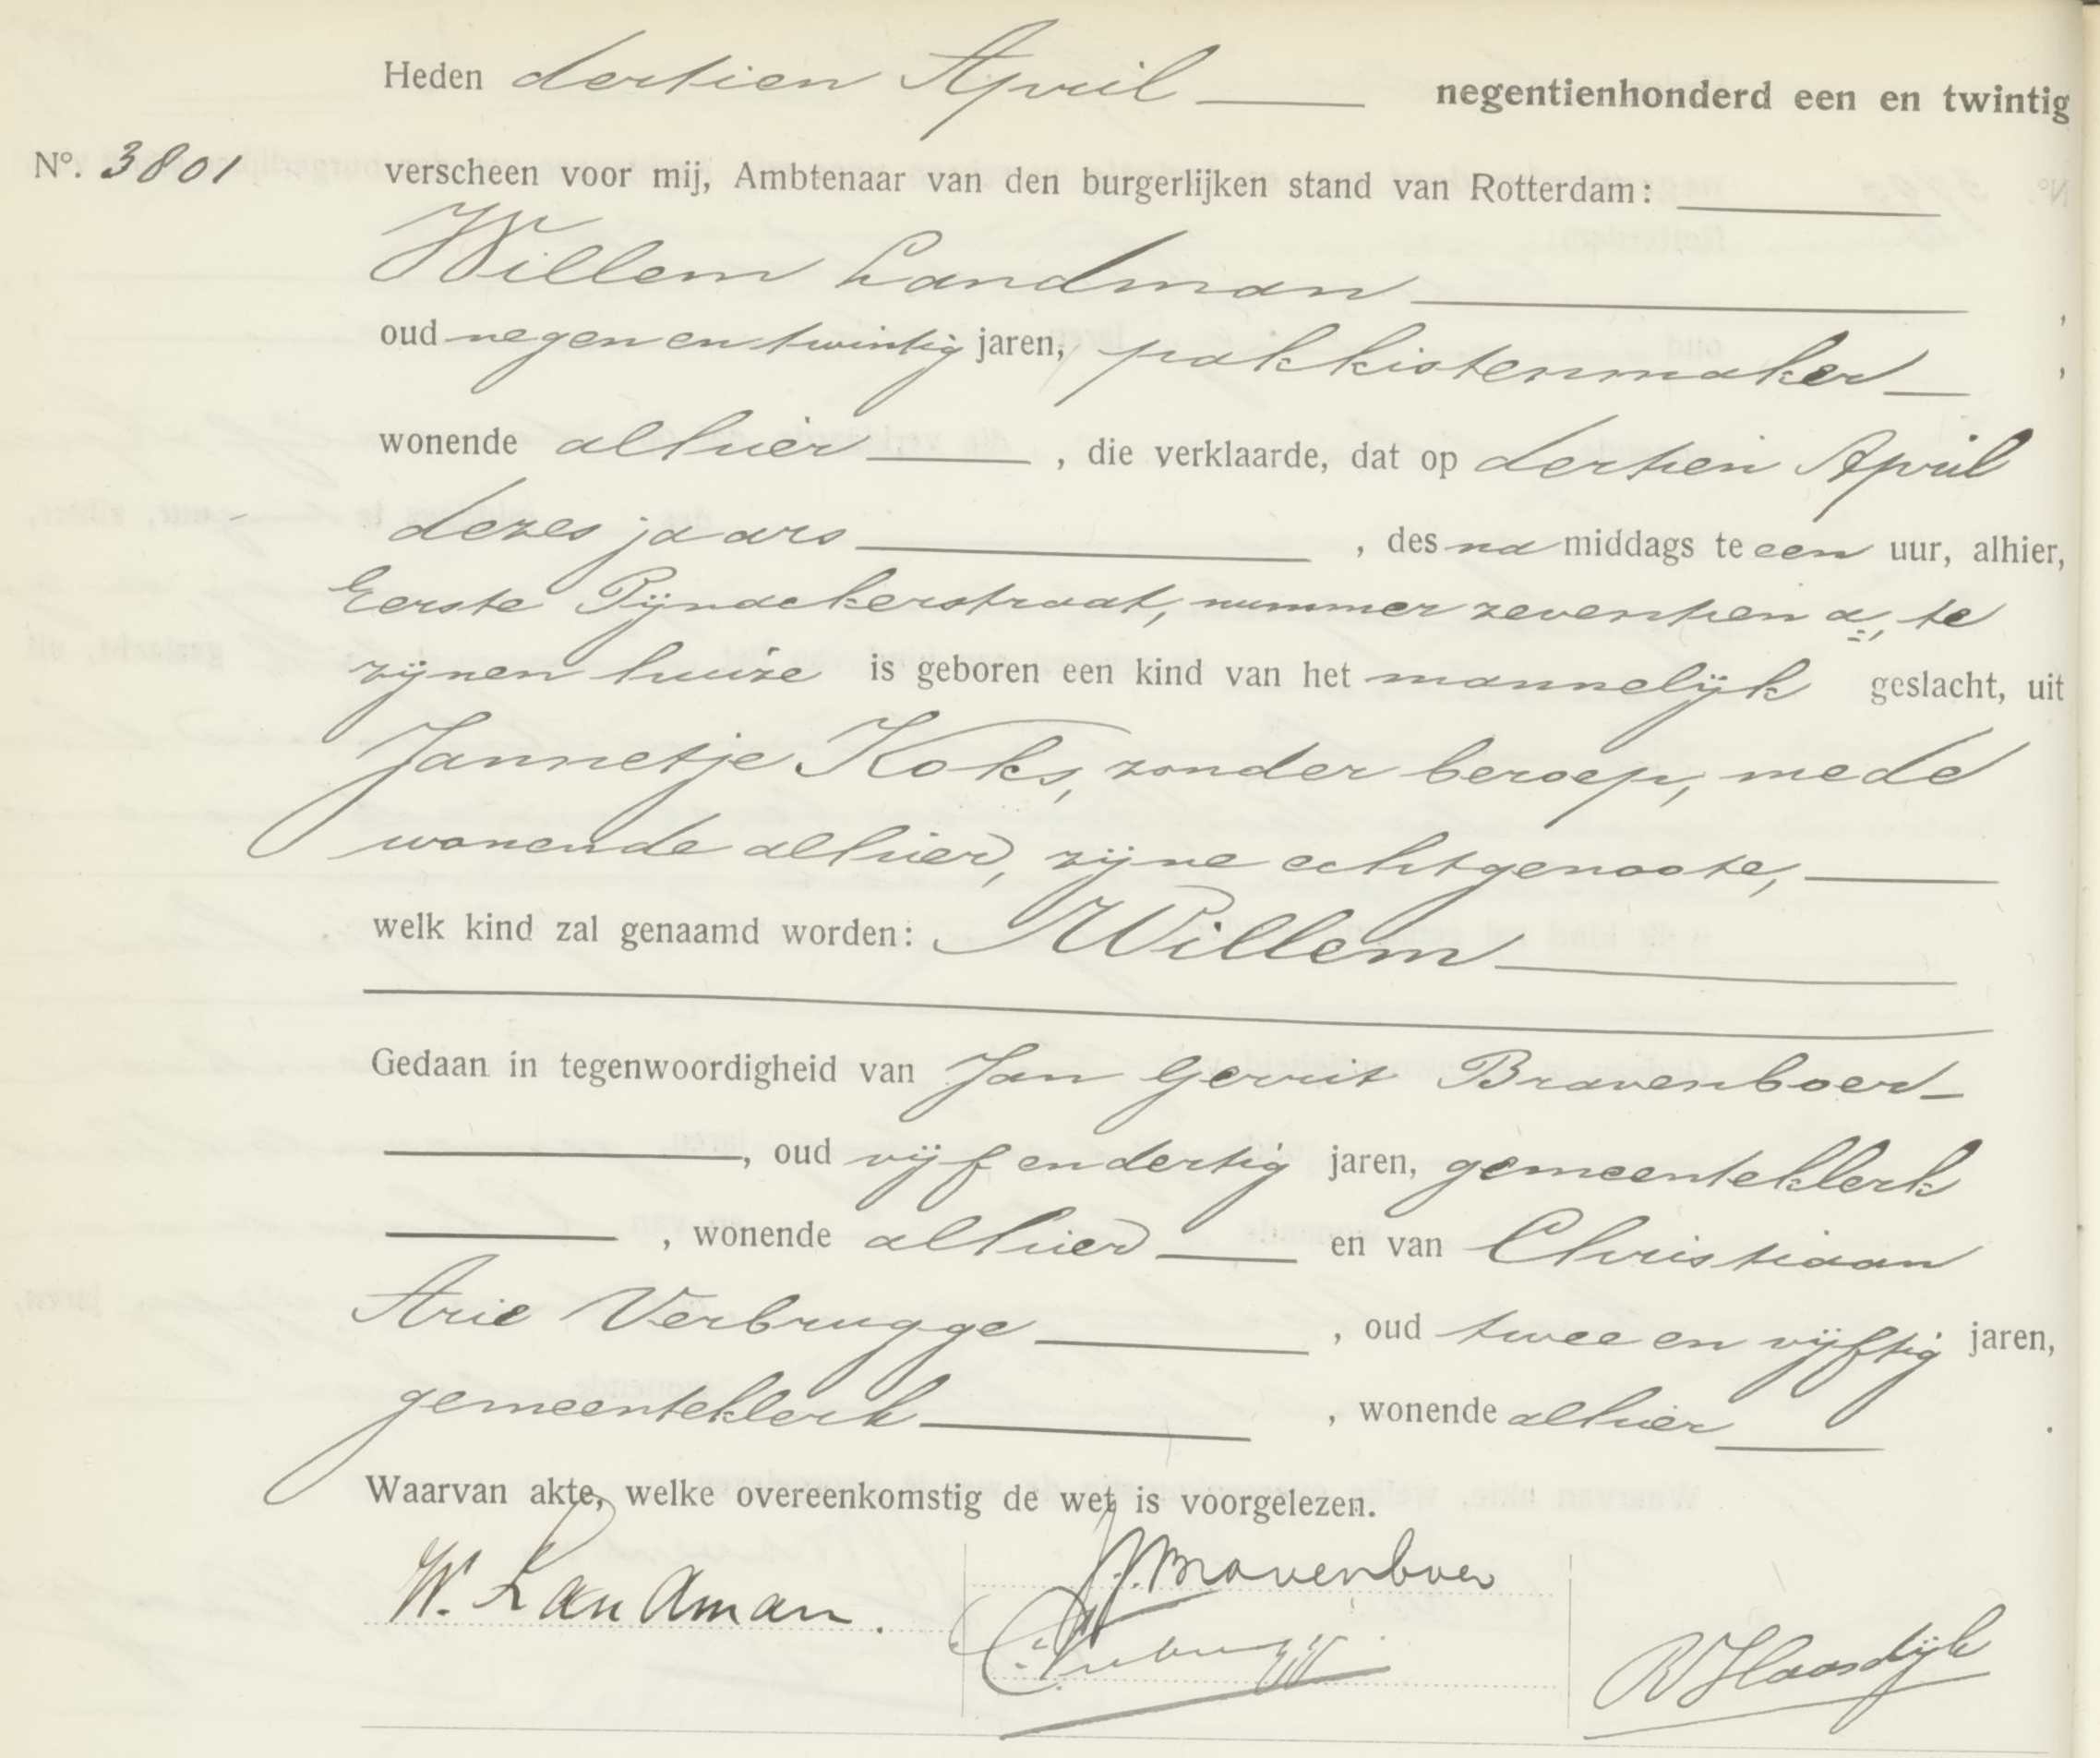 Heden dertien April negentienhonderd een en twintig
Nº. 3801 verscheen voor mij, Ambtenaar van den burgerlijken stand van Rotterdam:
Willem Landman,
oud negen en twintig jaren, pakkistenmaker,
wonende alhier, die verklaarde, dat op dertien April
dezes jaars, des na middags te een uur, alhier,
Eerste Pijnackerstraat, nummer zeventien a, te
zijnen huize is geboren een kind van het mannelijk geslacht, uit
Jannetje Koks, zonder beroep, mede
wonende alhier, zijne echtgenoote,
welk kind zal genaamd worden: Willem
Gedaan in tegenwoordigheid van Jan Gerrit Bravenboer
, oud vijf en dertig jaren, gemeenteklerk
, wonende alhier en van Christiaan
Arie Verbrugge, oud twee en vijftig jaren,
gemeenteklerk, wonende alhier.
Waarvan akte, welke overeenkomstig de wet is voorgelezen.
W. Landman.
J.G. Bravenboer